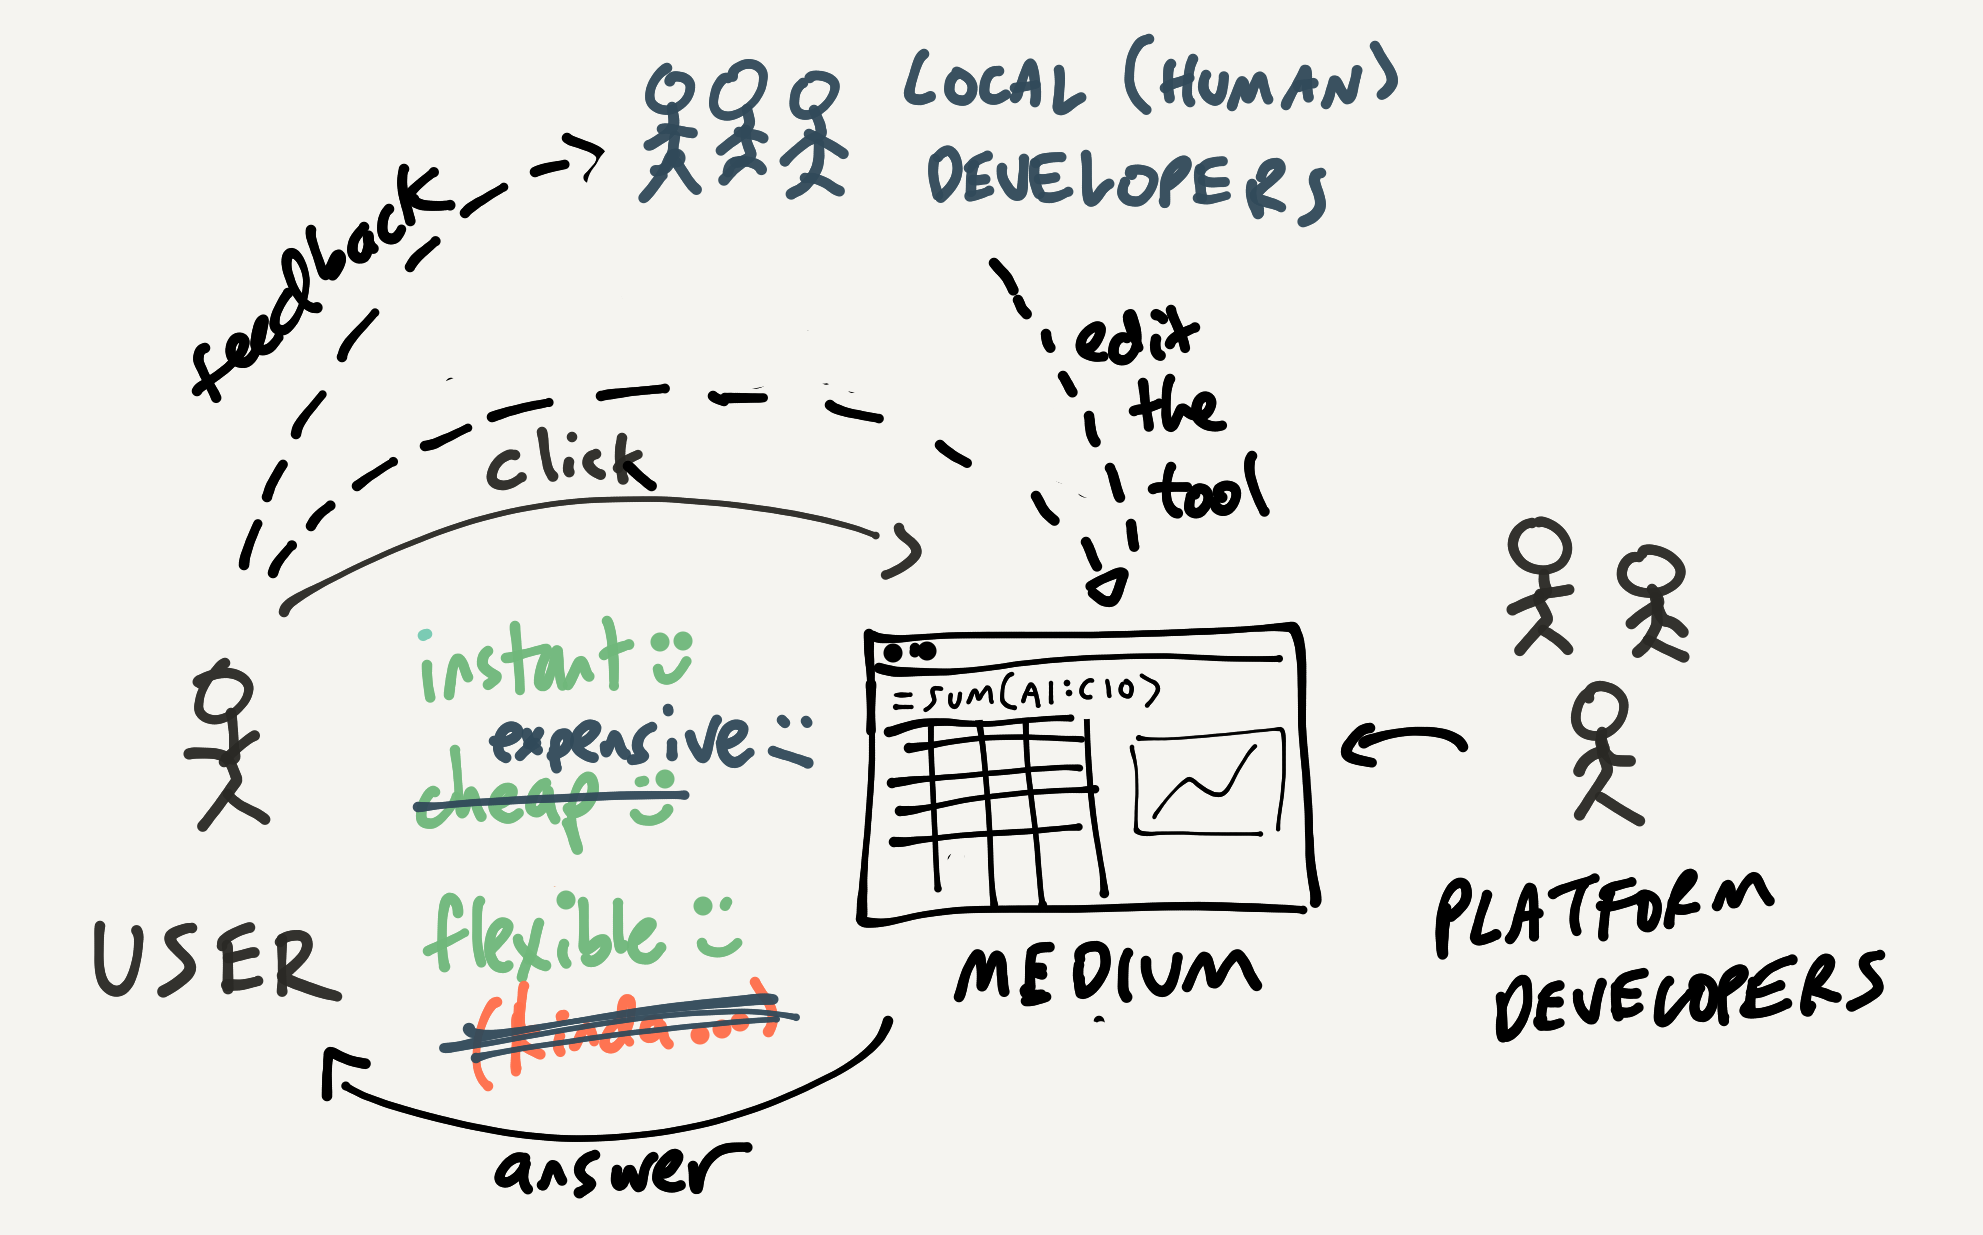 LOCAL (HUMAN)
DEVELOPERS
feedback
edit
the
tool
click
instant
expensive
cheap
flexible
(kinda...)
=SUM(A1:C10)
USER
MEDIUM
PLATFORM
DEVELOPERS
answer